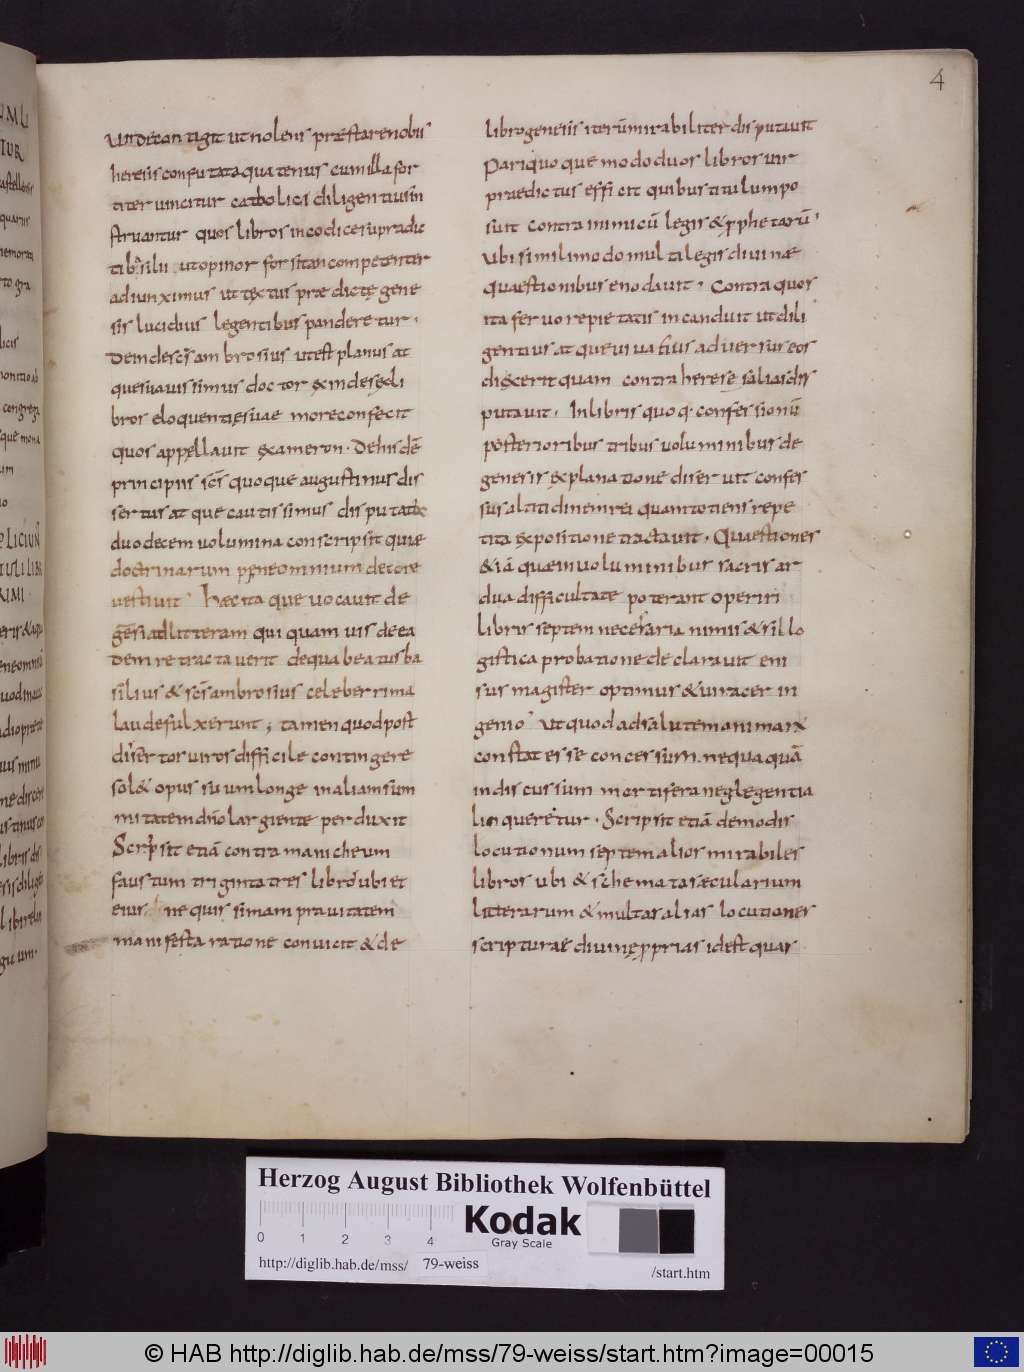 4
unde contigit ut nolens præstaret nobis
heresis confutata quatenus cum illa for
titer vincitur catholici diligentius in
struantur quos libros in codice supradic
ti basilii ut opinor forsitan competenter
adiunximus ut textus prædicte gene
sis lucidius legentibus panderetur.
Dein des̅c̅s ambrosius ut est planus at
que suavissimus doctor exinde sex li
bros eloquentiȩ suae more confecit
quos appellavit exameron. De his de̅
principiis s̅c̅s quoque augustinus dis
sertus atque cautissimus disputator
duodecem volumina conscripsit quae
doctrinarum pene omnium decore
vestivit. Hæc ita que vocavit de
genesi ad litteram qui quamvis de ea
dem retractaverit de qua beatus ba
silius & s̅c̅s ambrosius celeberrima
laude fulxerunt; tamen quod post
disertor viros difficile contingere
sol& opus suum longe in aliam sum
mitatem dn̅o largiente perduxit
Scripsit etia̅ contra manicheum
faustum triginta tres libros ubi et
eius nequissimam pravitatem
manifesta ratione convicit & de
libro genesis iteru̅ mirabiliter disputavit
Pari quoque modo duos libros vir
prædictus effi cit quibus titulum po
suit contra inimicu̅ legis & ꝓphetaru̅.
Ubi similimodo multa legis divinæ
quæstionibus enodavit. Contra quos
ita fervore pietatis incanduit ut dili
gentius atque vivatius adversus eos
dixcerit quam contra herese s alias dis
putavit. In libris quoq. confessionu̅
posterioribus tribus voluminibus de
genesis explanatione diseruit confes
sus altitudinem rei quam totiens repe
tita expositione tractavit. Quæstiones
& ia̅ quæ in voluminibus sacris ar
dua difficultate poterant operiri
libris septem necessaria nimis & sillo
gistica probatione declaravit eni
sus magister optimus & vir acer in
genio Ut quod ad salutem animarum
constat esse concessum. nequaqua̅
indiscussum mortifera neglegentia
linqueretur. Scripsit etia̅ demodis
locutionum septem alios mirabiles
libros ubi & schemata sæcularium
litterarum & multas alias locutiones
scripturae divinȩ ꝓprias id est quas
Herzog August Bibliothek Wolfenbüttel
0 1 2 3 4
Kodak
Gray Scale
http://diglib.hab.de/mss/ 79-weiss /start.htm
© HAB http://diglib.hab.de/mss/79-weiss/start.htm?image=00015